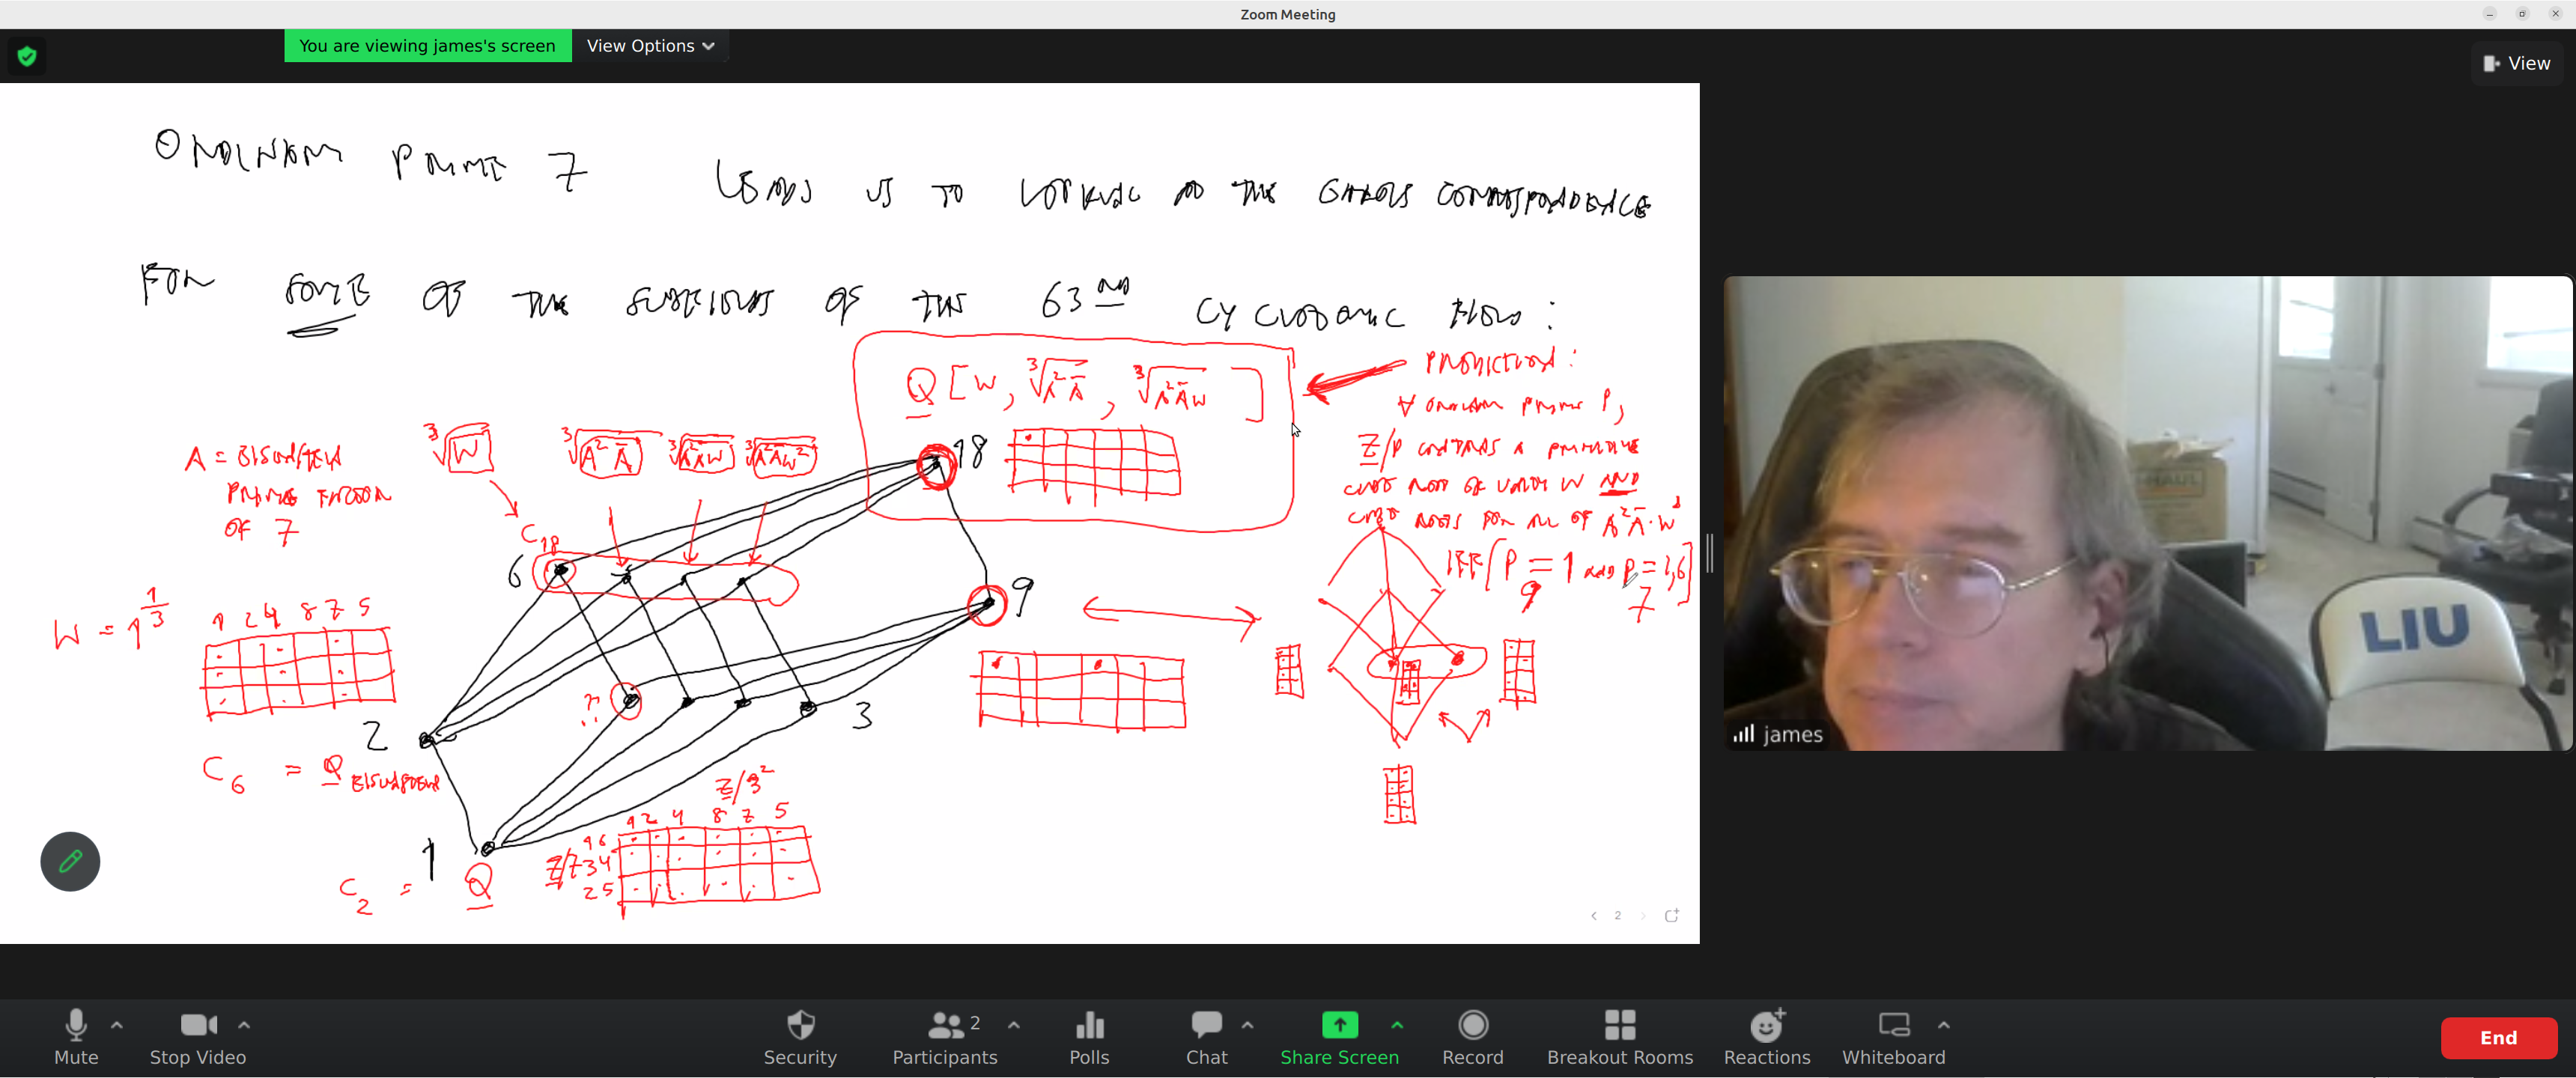 Zoom Meeting
You are viewing james's screen
View Options
View
ORDINARY PRIME 7 LEADS US TO LOOKING AT THE GALOIS CORRESPONDENCE
FOR SOME OF THE SUBFIELDS OF THE 63RD CYCLOTOMIC FIELD :
Q [ W , ∛A²Ā , ∛A²ĀW ]
PREDICTION :
∀ ORDINARY PRIME P,
Z/P CONTAINS A PRIMITIVE
CUBE ROOT OF UNITY W AND
CUBE ROOTS FOR ALL OF A²Ā·W
IFF [ P ≡ 1 AND P ≡ 1,6 ]
9 7
A = EISENSTEIN
PRIME FACTOR
OF 7
∛W ∛A²Ā ∛A²ĀW ∛A²ĀW²
18
C18
6
9
W = 1^1/3
1 2 4 8 7 5
2
??
3
C6 = Q EISENSTEIN
Z/3²
1 2 4 8 7 5
1 6
Z/7 3 4
2 5
1
C2 = Q
2
LIU
james
Mute
Stop Video
Security
Participants 2
Polls
Chat
Share Screen
Record
Breakout Rooms
Reactions
Whiteboard
End